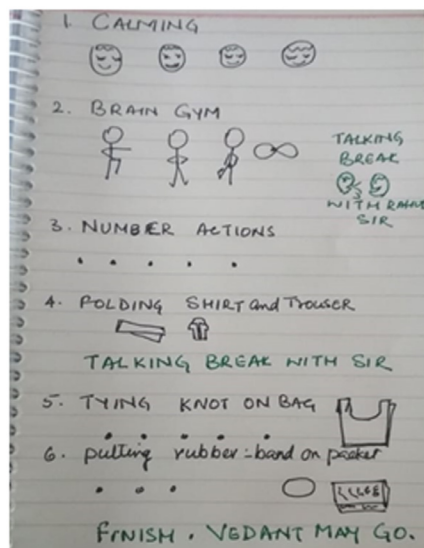 1. CALMING
2. BRAIN GYM
TALKING
BREAK
WITH RAHUL
SIR
3. NUMBER ACTIONS
4. FOLDING SHIRT and TROUSER
TALKING BREAK WITH SIR
5. TYING KNOT ON BAG
6. putting rubber-band on packet
FINISH. VEDANT MAY GO.